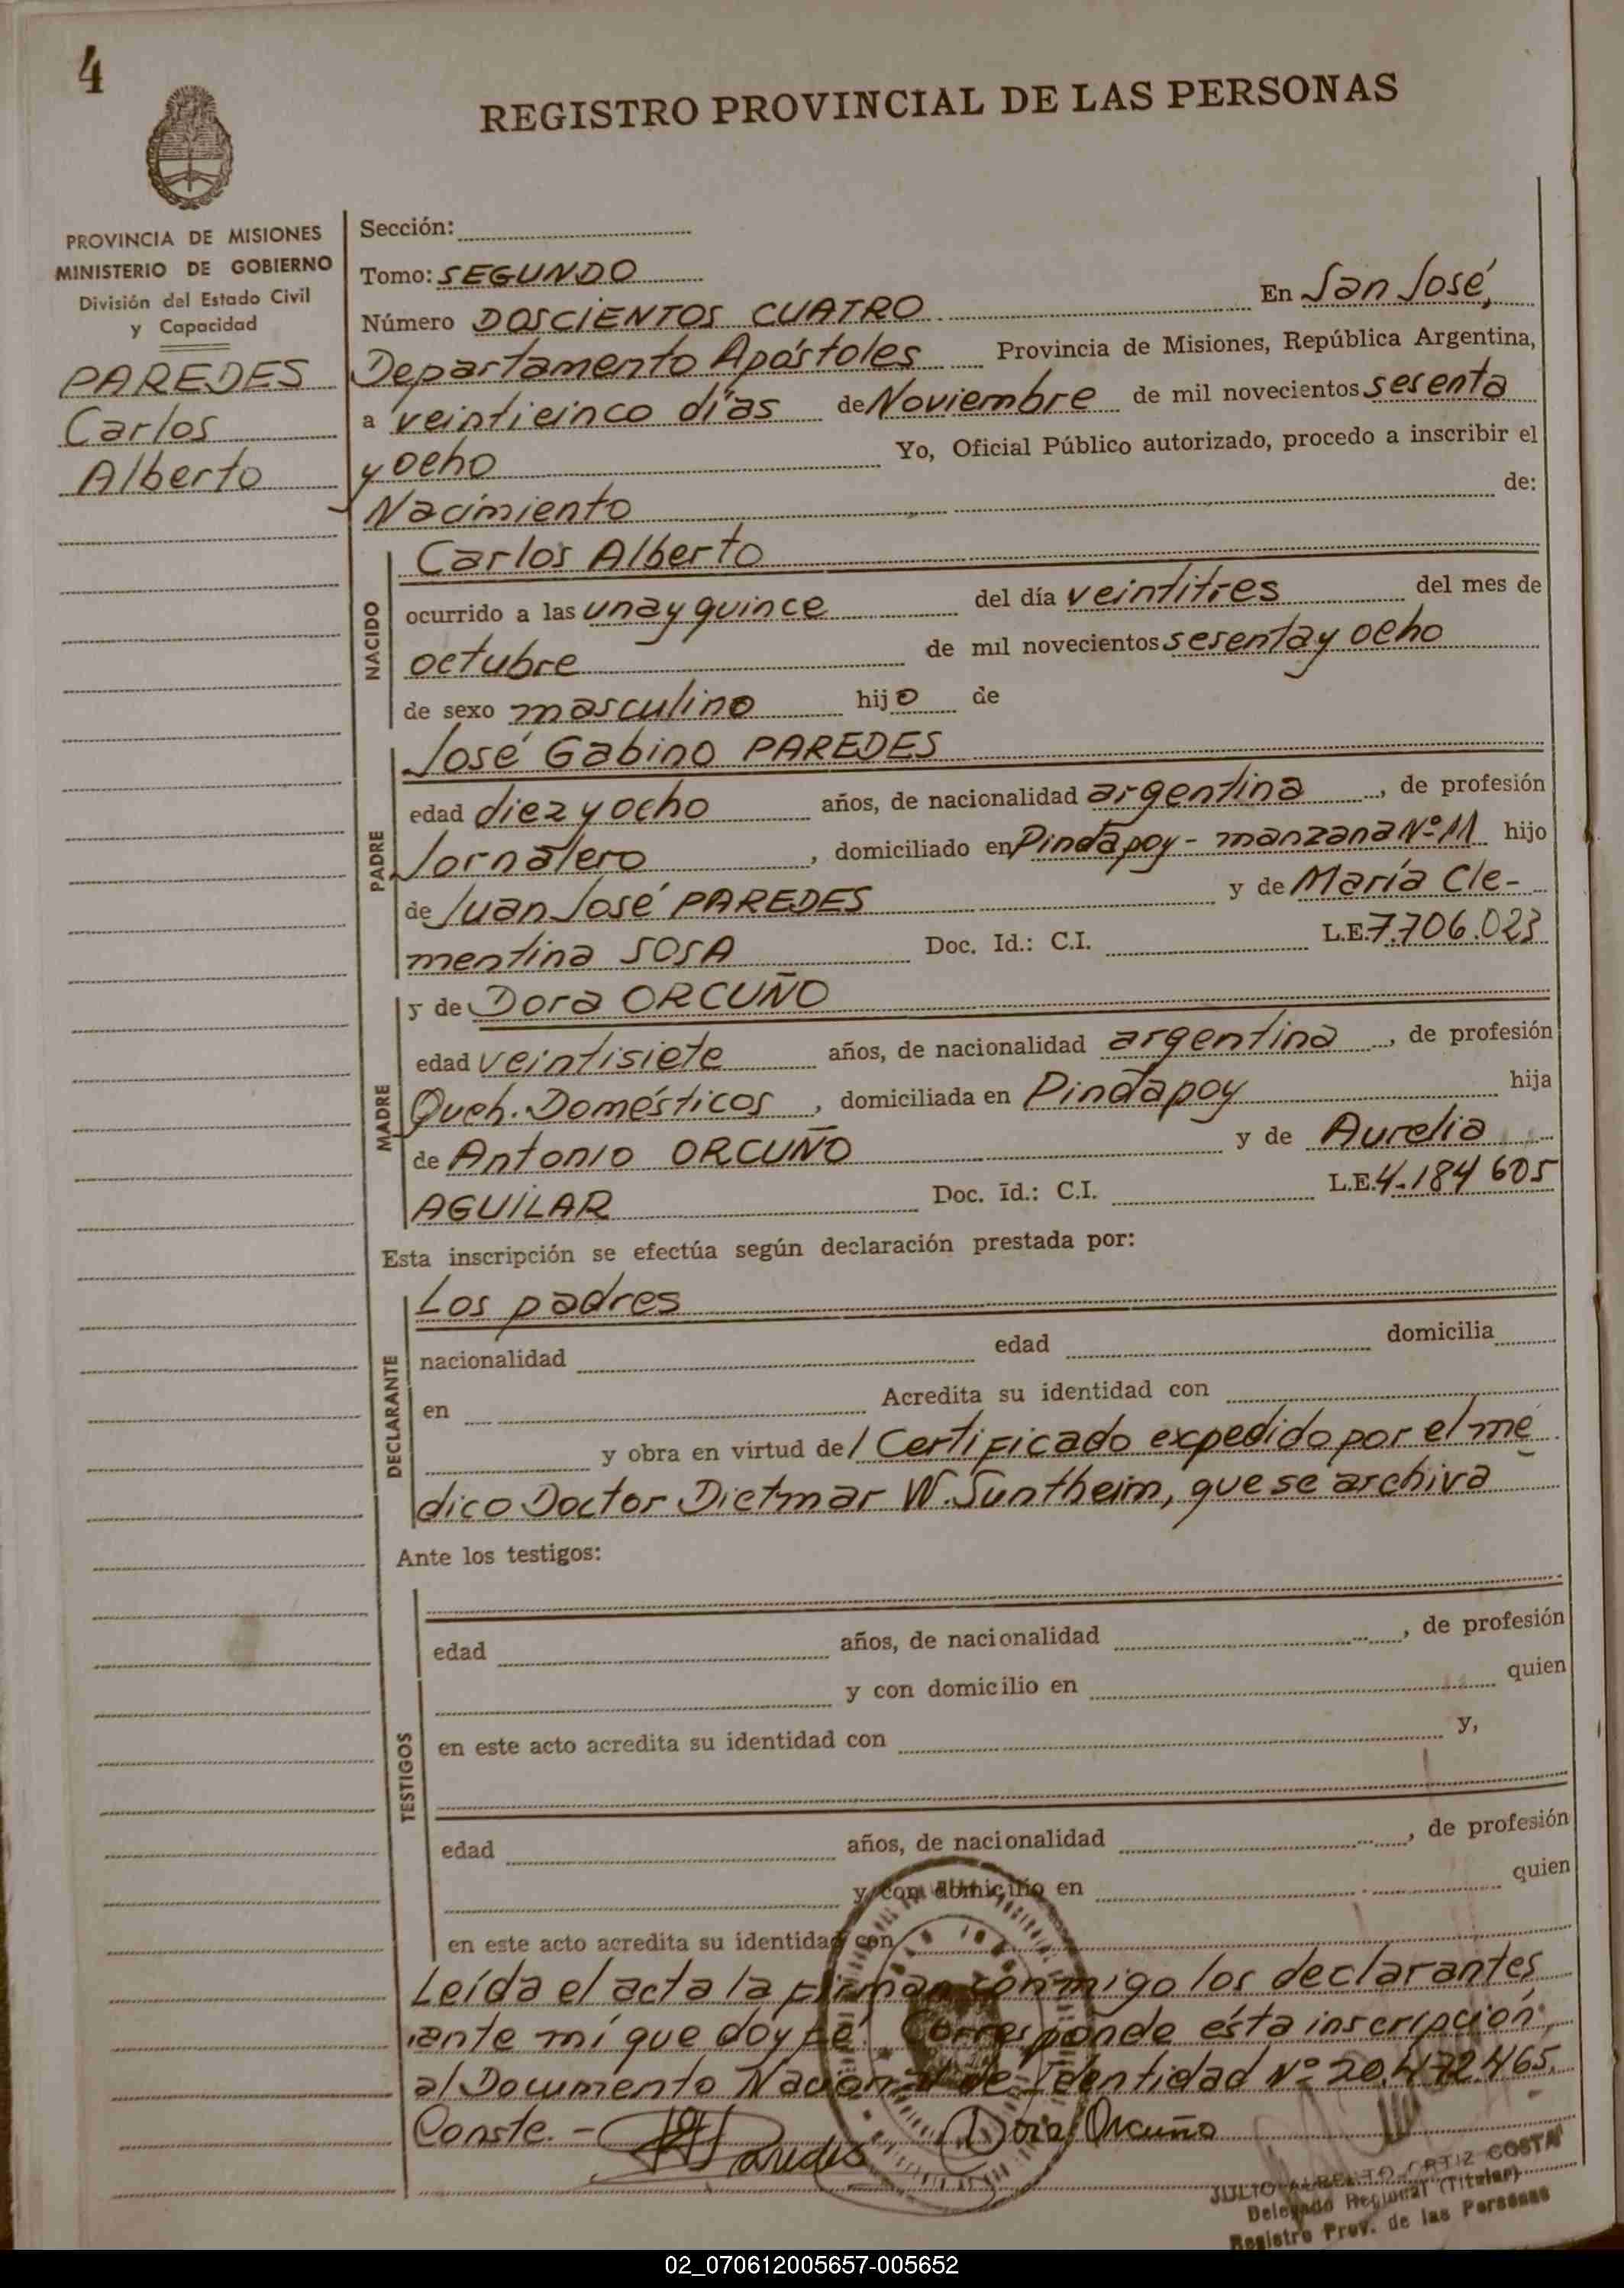 4
REGISTRO PROVINCIAL DE LAS PERSONAS
PROVINCIA DE MISIONES
MINISTERIO DE GOBIERNO
División del Estado Civil
y Capacidad
PAREDES
Carlos
Alberto
Sección:
Tomo: SEGUNDO
Número DOSCIENTOS CUATRO En San José,
Departamento Apóstoles Provincia de Misiones, República Argentina,
a veinticinco días de Noviembre de mil novecientos sesenta
y ocho Yo, Oficial Público autorizado, procedo a inscribir el
Nacimiento de:
NACIDO
Carlos Alberto
ocurrido a las una y quince del día veintitres del mes de
octubre de mil novecientos sesenta y ocho
de sexo masculino hijo de
PADRE
José Gabino PAREDES
edad diez y ocho años, de nacionalidad argentina, de profesión
Jornalero, domiciliado en Pindapoy - manzana Nº 11 hijo
de Juan José PAREDES y de María Cle-
mentina SOSA Doc. Id.: C.I. L.E. 7.706.023
MADRE
y de Dora ORCUÑO
edad veintisiete años, de nacionalidad argentina, de profesión
Queh. Domésticos, domiciliada en Pindapoy hija
de Antonio ORCUÑO y de Aurelia
AGUILAR Doc. Id.: C.I. L.E. 4.184 605
Esta inscripción se efectúa según declaración prestada por:
DECLARANTE
Los padres
nacionalidad edad domicilia
en Acredita su identidad con
y obra en virtud del Certificado expedido por el mé
dico Doctor Dietmar W. Suntheim, que se archiva
Ante los testigos:
TESTIGOS
edad años, de nacionalidad , de profesión
y con domicilio en quien
en este acto acredita su identidad con y,
edad años, de nacionalidad , de profesión
y con domicilio en quien
en este acto acredita su identidad con
Leída el acta la firman conmigo los declarantes
ante mí que doy fé. Corresponde ésta inscripción,
al Documento Nacional de Identidad Nº 20.472.465.
Conste. - Paredes Dora Orcuño
JULIO ALBERTO ORTIZ COSTA
Delegado Regional (Titular)
Registro Prov. de las Personas
02_070612005657-005652